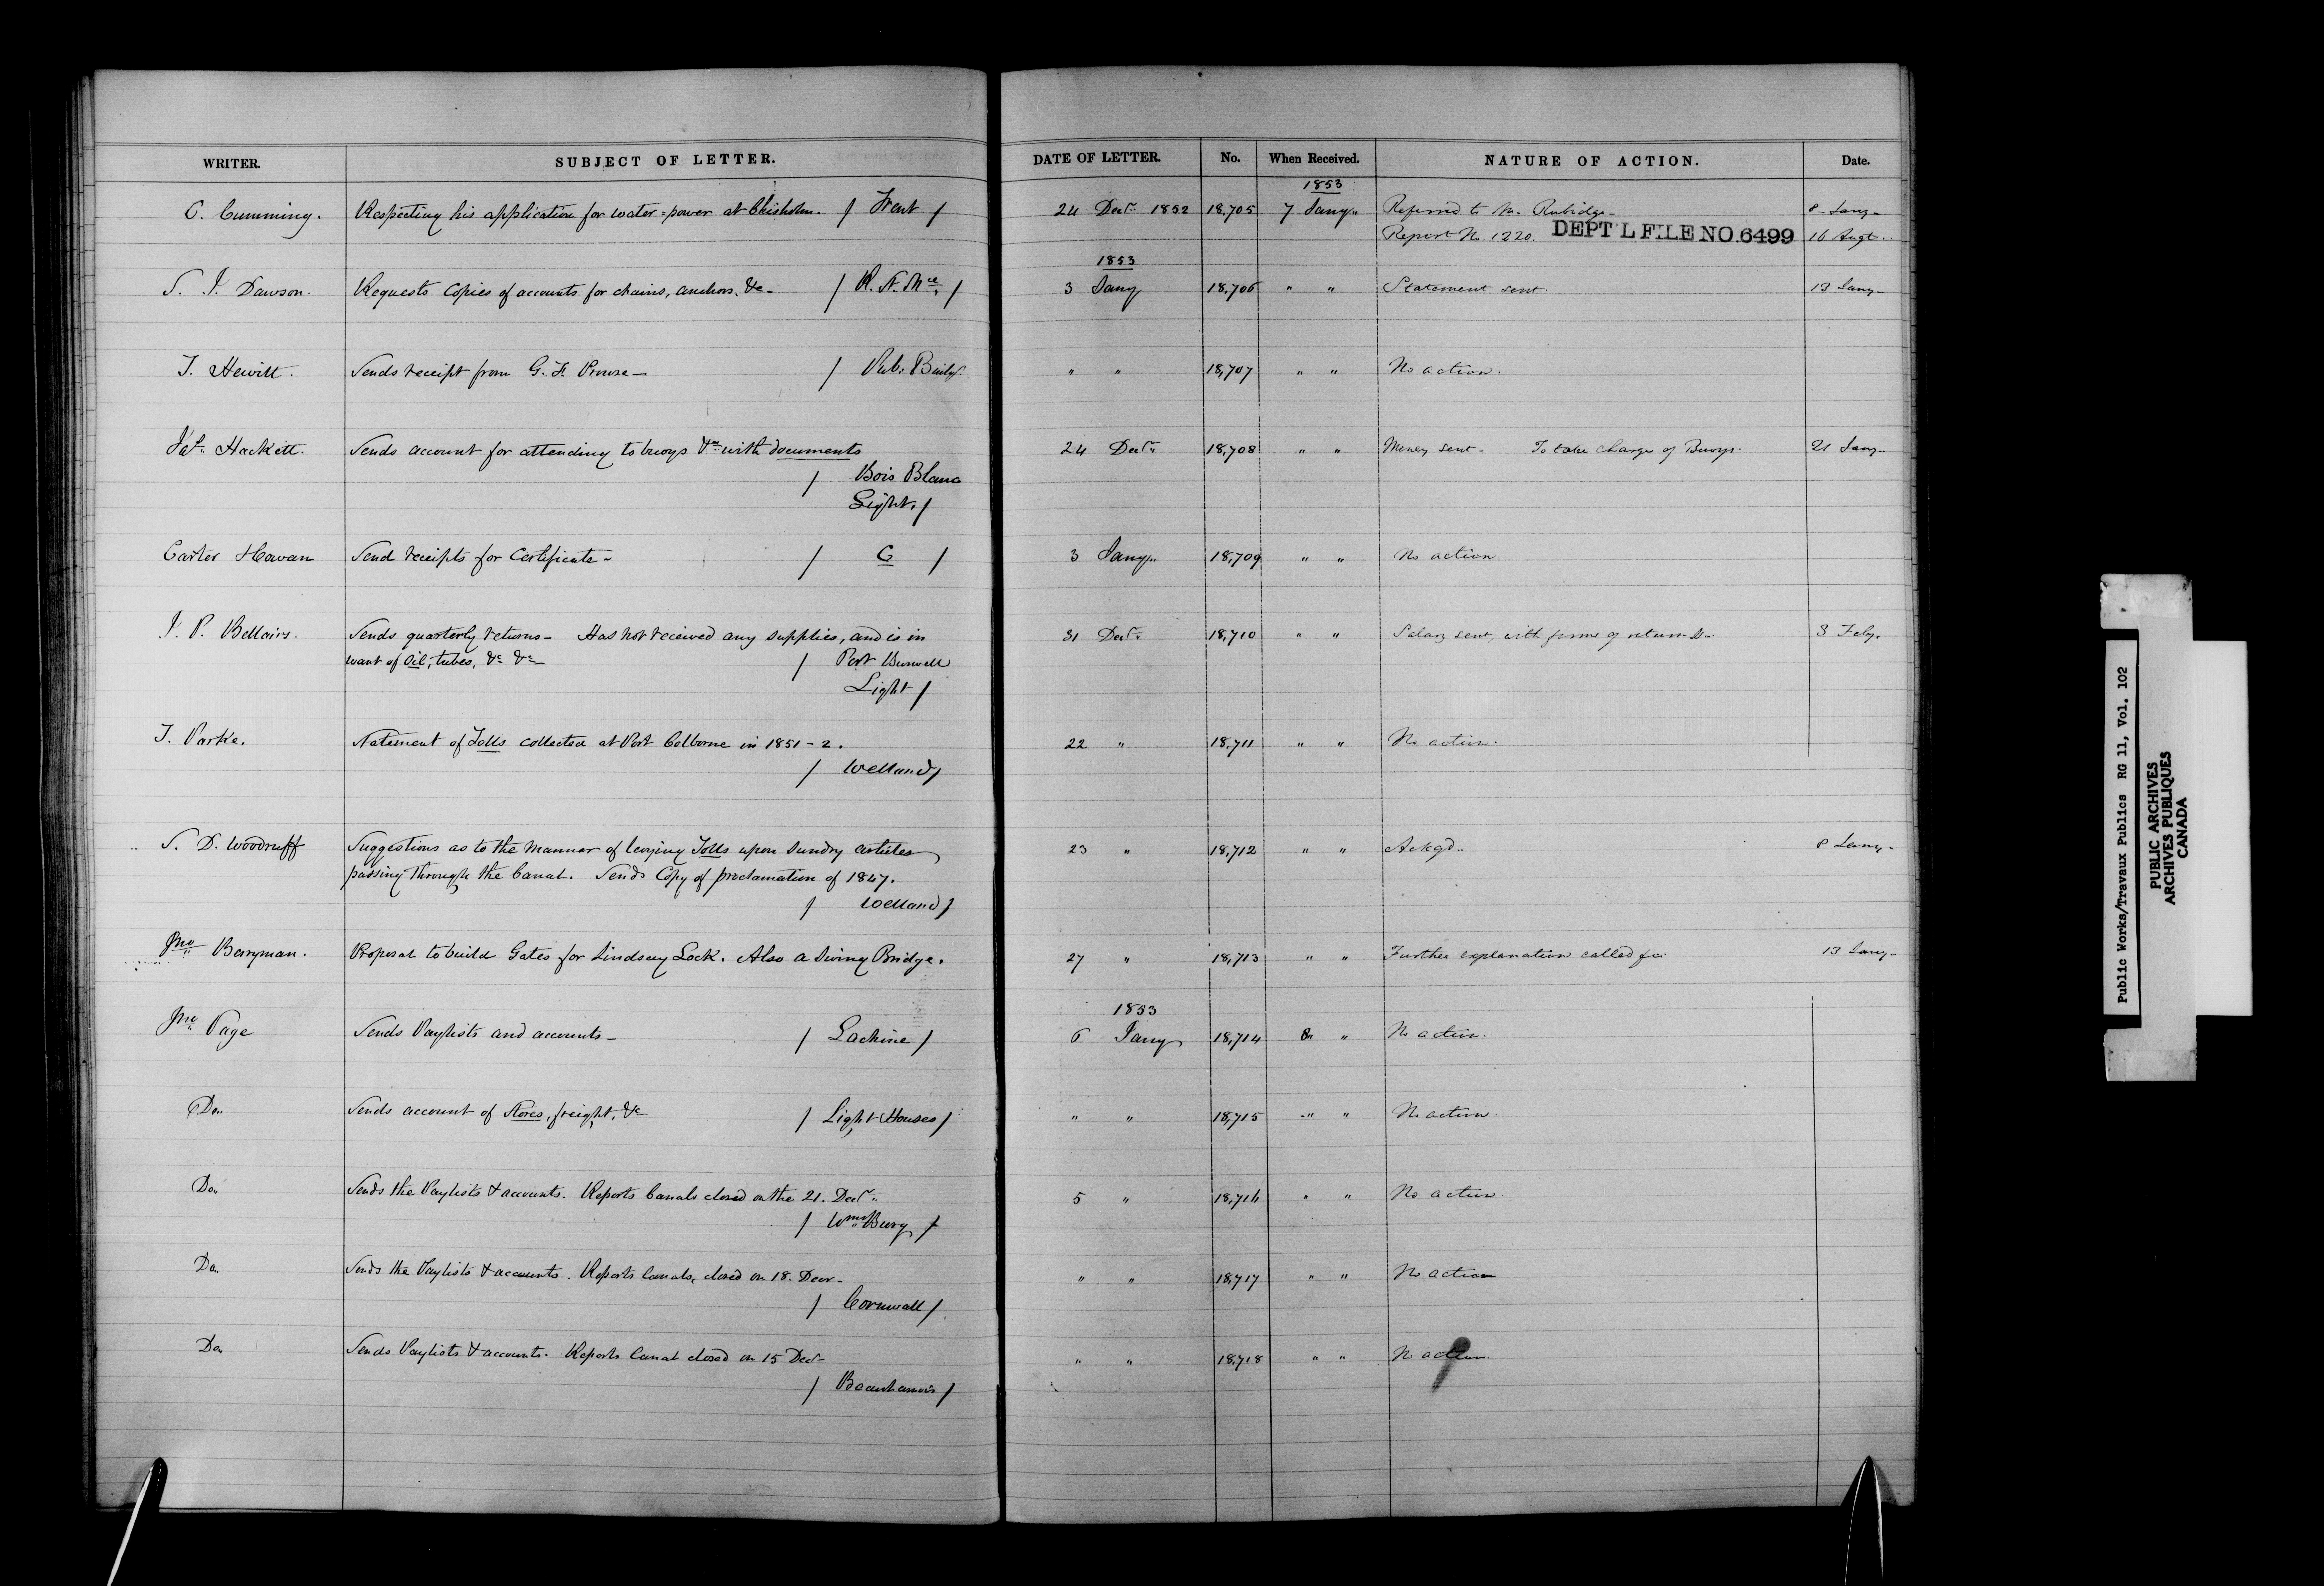 WRITER. SUBJECT OF LETTER. DATE OF LETTER. No. When Received. NATURE OF ACTION. Date.
1853
C. Cumming. Respecting his application for water=power at Chisholm. / Trent / 24 Decr. 1852 18,705 7 Jany. Referred to Mr. Rubidge- 8 Jany-
Report No. 1220. DEPT'L FILE NO. 6499 16 Augt.
1853
S. J. Dawson. Requests Copies of accounts for chains, anchors, &c- / R. St. Mce. / 3 Jany 18,706 " " Statement sent. 13 Jany-
J. Hewitt. Sends receipt from G. F. Prowse- / Pub. Buildgs. " " 18,707 " " No action.
Jas. Hackett. Sends account for attending to buoys &c. with documents 24 Decr. 18,708 " " Money sent- To take charge of Buoys. 21 Jany.
/ Bois Blanc
Light. /
Carter Havan Send receipts for Certificate- / C / 3 Jany. 18,709 " " No action.
J. P. Bellairs. Sends quarterly returns- Has not received any supplies, and is in 31 Decr. 18,710 " " Salary sent, with forms of return &c- 3 Feby.
want of Oil, tubes, &c &c- / Port Burwell
Light /
T. Parke. Statement of Tolls collected at Port Colborne in 1851-2. 22 " 18,711 " " No action.
/ Welland /
S. D. Woodruff Suggestions as to the manner of levying Tolls upon sundry articles 23 " 18,712 " " Ackgd. 8 Jany-
passing through the Canal. Sends Copy of proclamation of 1847.
/ Welland /
Jno. Berryman. Proposal to build Gates for Lindsay Lock. Also a Swing Bridge. 27 " 18,713 " " Further explanation called for. 13 Jany-
1853
Jno. Page Sends Paylists and accounts- / Lachine / 6 Jany 18,714 8 " No action.
Do. Sends account of Stores, freight, &c / Light Houses / " " 18,715 " " No action.
Do. Sends the Paylists & accounts. Reports Canals closed on the 21. Decr. 5 " 18,716 " " No action
/ Wmsburg /
Do. Sends the Paylists & accounts. Reports Canals, closed on 18. Decr- " " 18,717 " " No action
/ Cornwall /
Do. Sends Paylists & accounts. Reports Canal closed on 15 Decr- " " 18,718 " " No action.
/ Beauharnois /
Public Works/Travaux Publics RG 11, Vol. 102
PUBLIC ARCHIVES
ARCHIVES PUBLIQUES
CANADA